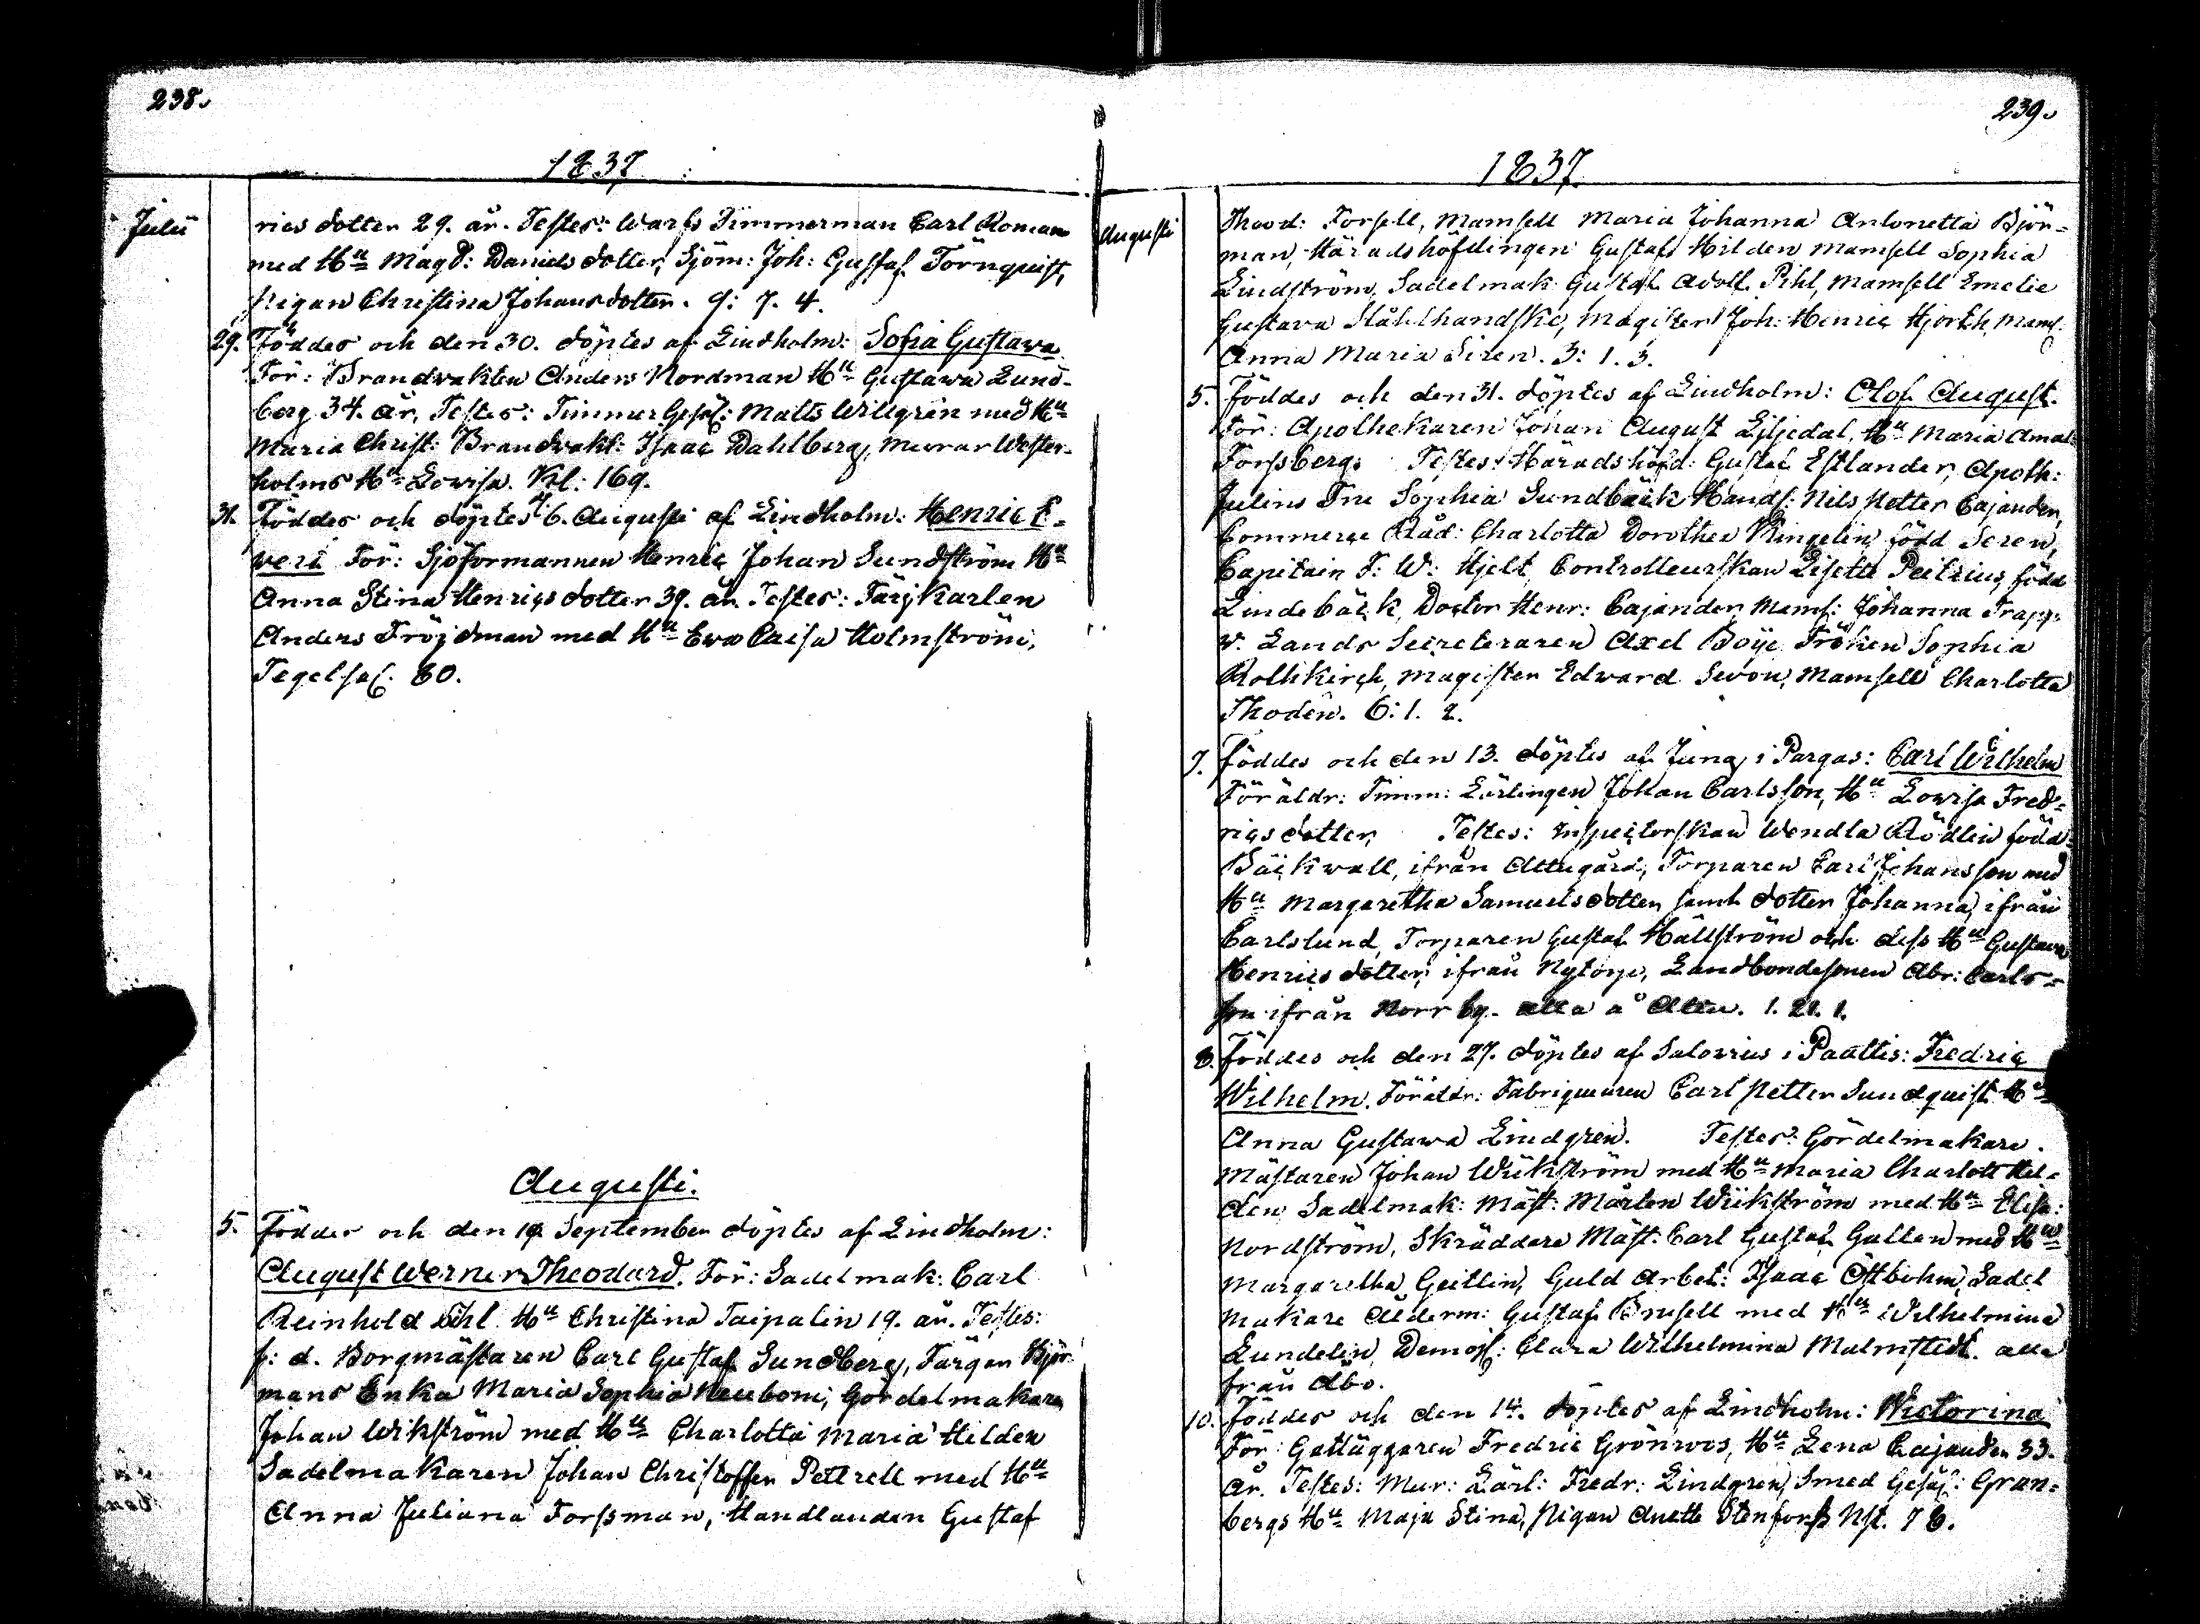 238.
1837
Julii
rics dotter 29. år. Testes: Warfs Timmerman Carl Roman
med Hu Magd: Daniels dotter, Sjöm: Joh: Gustaf Törnquist,
Pigan Christina Johansdotter. q: 7. 4.
29. Föddes och den 30. döptes af Lindholm: Sofia Gustava
För: Brandvakten Anders Nordman Hu Gustawa Lund-
berg 34. år, Testes: Timmer Gesäl: Matts Willgrén med Hu
Maria Christ: Brandvakt: Isaac Dahlberg, Murar Wester-
holms Hu Lovisa. Kl: 169.
31. Föddes och döptes d. 6. Augusti af Lindholm: Henric E-
veri För: Sjöformannen Henric Johan Sundström Hu
Anna Stina Henrics dotter 39. år. Testes: Färjkarlen
Anders Fröjdman med Hu Eva Caisa Holmström,
Tegelsal. 80.
Augusti.
5. Föddes och den 19. September döptes af Lindholm:
August Werner Theodard. För: Sadelmak: Carl
Reinhold Pihl Hu Christina Taipalin 19. år. Testes:
f: d. Borgmästaren Carl Gustaf Sundberg, Färgan Björ-
mans Enka Maria Sophia Neubom, Gördelmakaren
Johan Wikström med Hu Charlotta Maria Hilden
Sadelmakaren Johan Christoffer Pettrell med Hu
Anna Juliana Forssman, Handlanden Gustaf
239.
1837.
Augusti
Theod: Forsell, Mamsell Maria Johanna Antonetta Björ-
man, Häradshöfdingen Gustaf Hilden Mamsell Sophia
Lindström, Sadelmak: Gustaf Adolf Pihl, Mamsell Emelie
Gustava Stålhandske, Magister Joh: Henric Hjorth, Mams.
Anna Maria Siren. 3: 1. 3.
5. Föddes och den 31. döptes af Lindholm: Olof August.
För: Apothekaren Johan August Liljedal, Hu Maria Amal:
Forssberg. Testes: Häradshöfd: Gustaf Estlander, Apoth:
Julins Fru Sophia Sundbäck Handl: Nils Petter Cajander,
Commerce Råd: Charlotta Dorothea Kingelin född Seren,
Capitain F: W: Hjelt, Controlleurskan Lisette Peitzius, född
Lindebäck, Doctor Henr: Cajander, Mams: Johanna Trapp
v. Lands Secreteraren Axel Boije Fröken Sophia
Rothkirch, Magister Edward Sevon, Mamsell Charlotta
Thodén. 6: 1. 2.
7. Föddes och den 13. döptes af Jung i Pargas: Carl Wilhelm
Föräldr: Timm: Lärlingen Johan Carlsson, Hu Lovisa Fred-
rics dotter, Testes: Inspectorskan Wendla Rödlin född
Bäckwall, ifrån Attugård, Torparen Carl Johansson med
Hu Margaretha Samuels dotter, samt dotter Johanna, ifrån
Carlslund, Torparen Gustaf Hällström och dess Hu Gustava
Henrics dotter, ifrån Nytorp, Landbondesonen Abr: Carls-
son ifrån Norrby. alla å Attu. 1. 21. 1.
8. Föddes och den 27. döptes af Salovius i Paattis: Fredric
Wilhelm. Föräldr: Fabriqueuren Carl Petter Sundquist Hu
Anna Gustawa Lindgren. Testes: Gördelmakare.
Mästaren Johan Wiikström med Hu Maria Charlott Hel-
dén Sadelmak: Mäst: Mårten Wiikström med Hu Elisa:
Nordström, Skräddare Mäst: Carl Gustaf Gallen med Hu
Margaretha Geitlin, Guld Arbet: Isaac Östbohm, Sadel
Makare Ålderm: Gustaf Brusell med Hu Wilhelmina
Lundelin, Demois: Clara Wilhelmina Malmstedt. alla
från Åbo.
10. Föddes och den 14. döptes af Lindholm: Wictorina
För: Gatläggaren Fredric Grönroos, Hu Lena Cajander 33.
år. Testes: Mur: Lärl: Fredr: Lindgren, Smed Gesäl: Gran-
bergs Hu Maja Stina, Pigan Anette Stenforss Nst. 78.